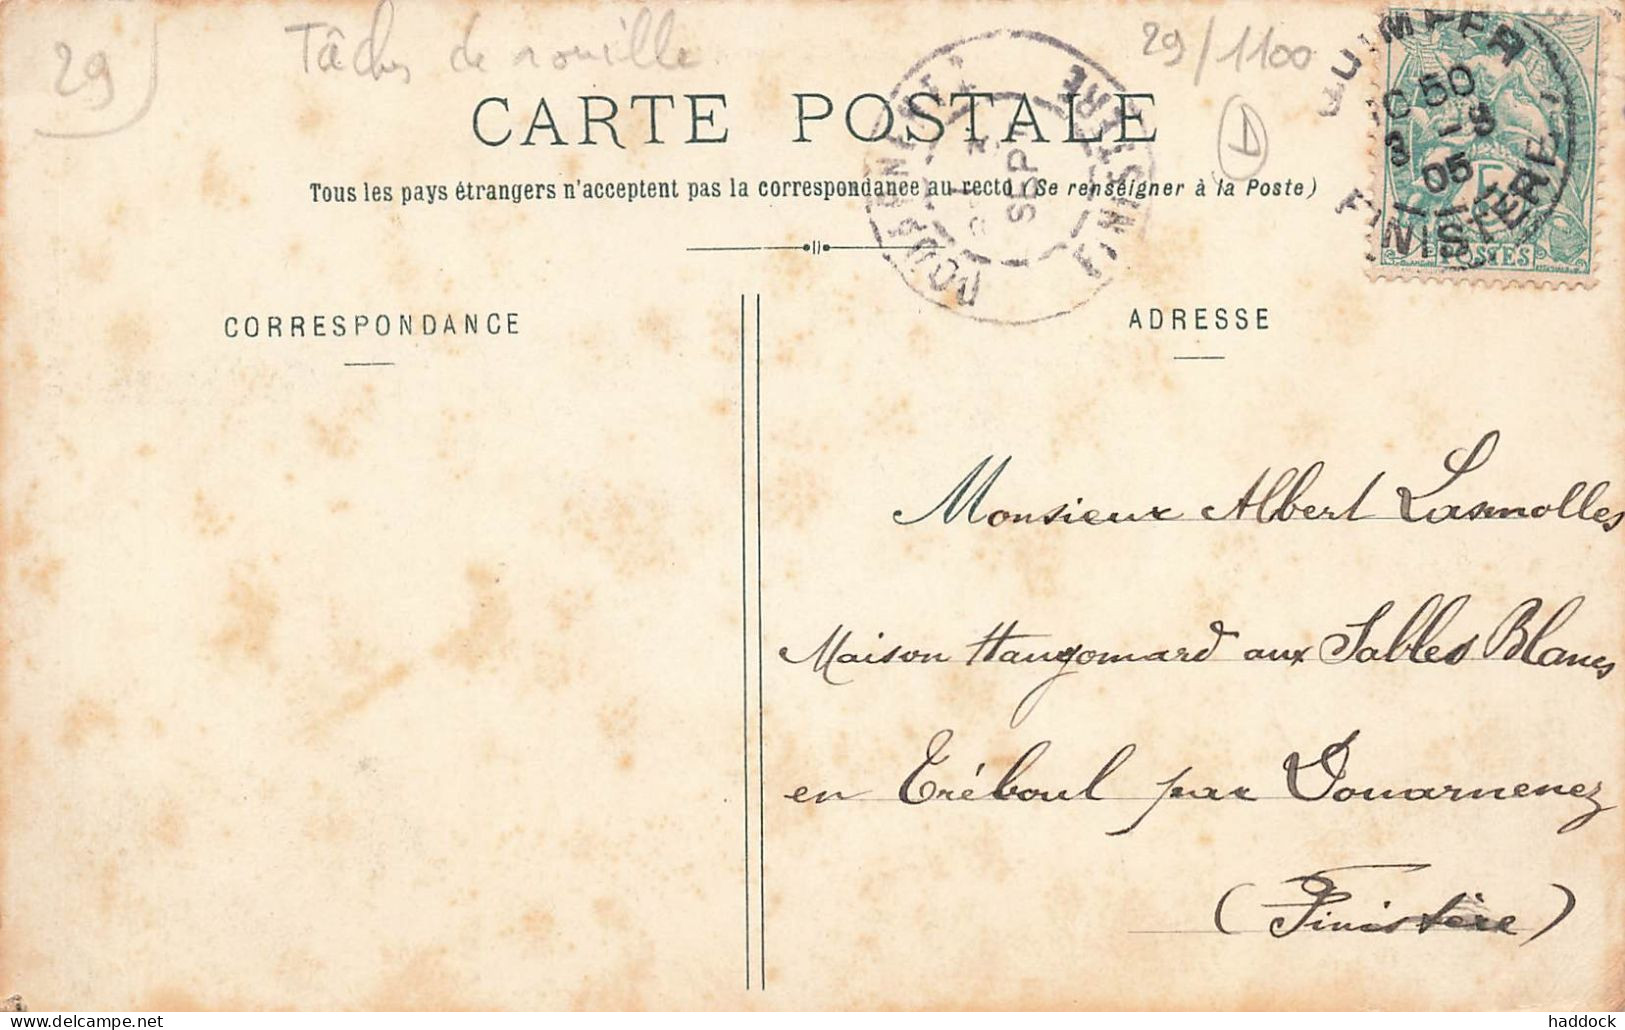 29
Tâches de rouille
29/1100
CARTE POSTALE
D
Tous les pays étrangers n'acceptent pas la correspondance au recto (Se renseigner à la Poste)
DOUARNENEZ
SEPT
FINISTERE
QUIMPER
50
3 - 9
05
FINISTERE
POSTES
CORRESPONDANCE
ADRESSE
Monsieur Albert Lasmolles
Maison Haugomard aux Sables Blancs
en Tréboul par Douarnenez
(Finistère)
haddock